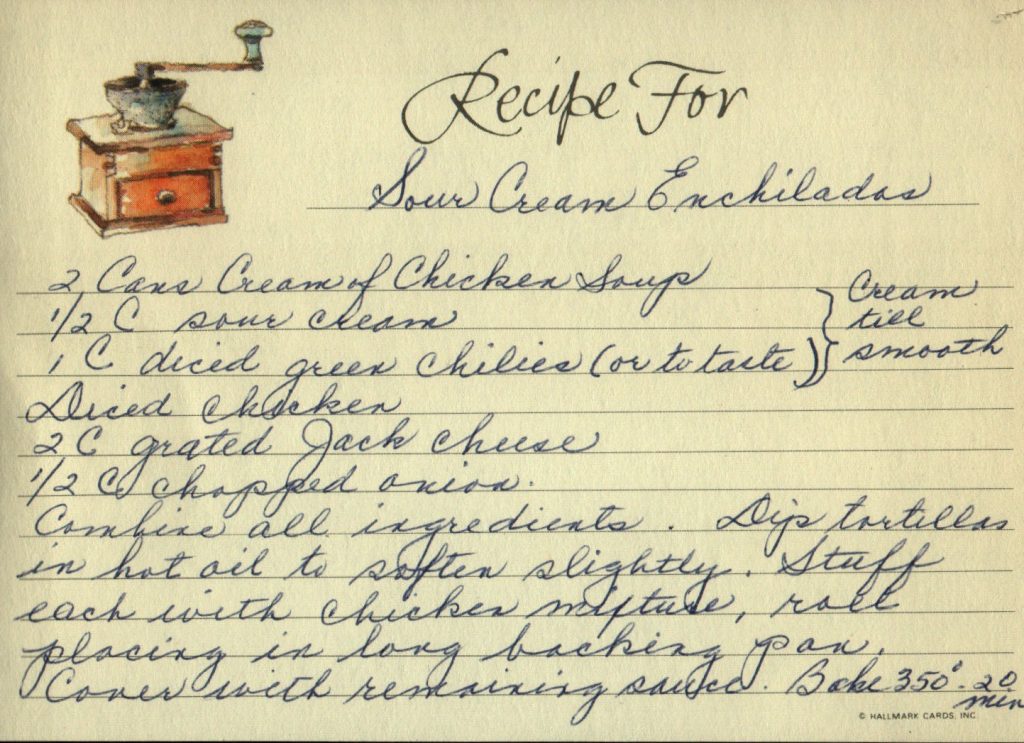 Recipe For
Sour Cream Enchiladas
2 Cans Cream of Chicken Soup
1/2 C sour cream
1 C diced green chilies (or to taste)
} Cream
till
smooth
Diced chicken
2 C grated Jack cheese
1/2 C chopped onion.
Combine all ingredients. Dip tortillas
in hot oil to soften slightly. Stuff
each with chicken mixture, roll
placing in long backing pan.
Cover with remaining sauce. Bake 350°. 20
min
© HALLMARK CARDS, INC.